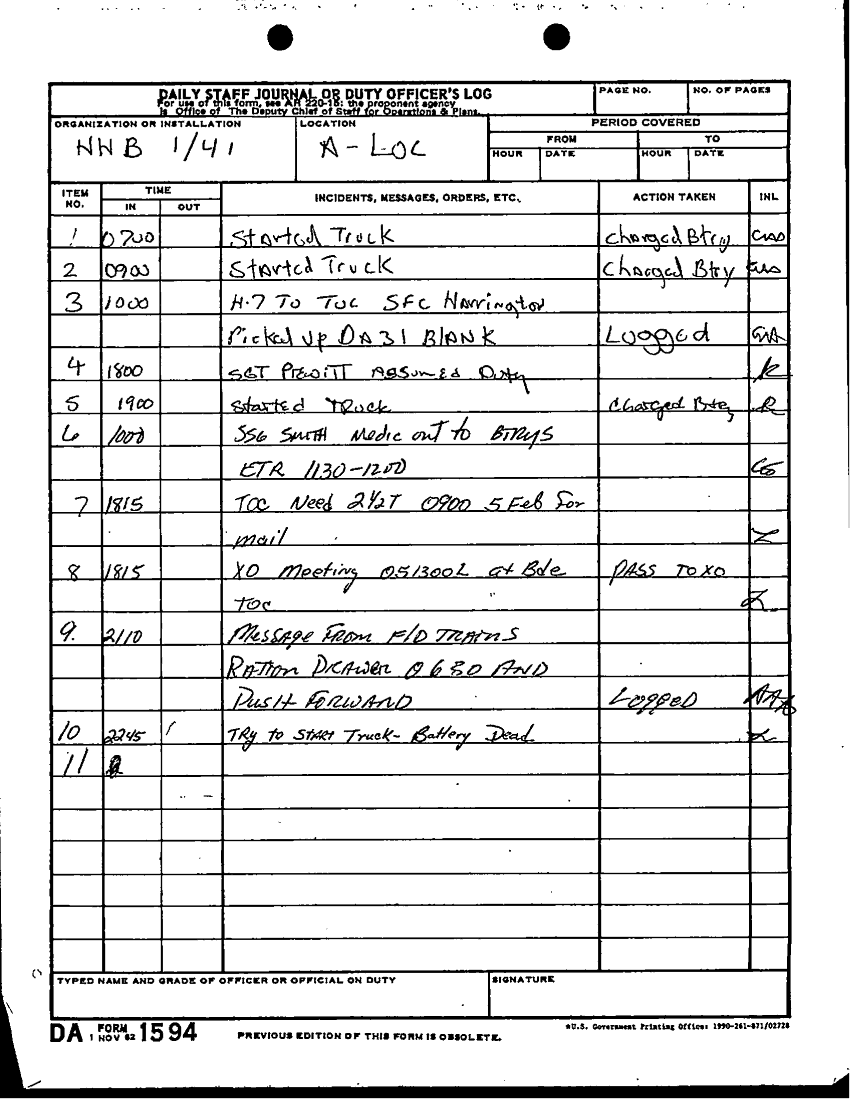 DAILY STAFF JOURNAL OR DUTY OFFICER'S LOG
For use of this form, see AR 220-15; the proponent agency
is Office of The Deputy Chief of Staff for Operations & Plans.
PAGE NO. NO. OF PAGES
ORGANIZATION OR INSTALLATION
HHB 1/41
LOCATION
A-LOC
PERIOD COVERED
FROM TO
HOUR DATE HOUR DATE
ITEM NO. TIME INCIDENTS, MESSAGES, ORDERS, ETC. ACTION TAKEN INL
IN OUT
1 0700 Started Truck Charged Btry
2 0900 Started Truck Charged Btry
3 1000 H-7 To TOC SFC Harrington
Picked up DA 31 BLANK Logged
4 1800 SGT PREWITT ASSUMED Duty
5 1900 Started Truck Charged Btry
6 1000 SSG SMITH Medic out to BTRYS
ETR 1130-1200
7 1815 TOC Need 2½T 0900 5 Feb for
mail
8 1815 XO Meeting 051300L at Bde PASS TO XO
TOC
9. 2110 MESSAGE FROM F/D TRAINS
RATION DRAWER 0630 AND
PUSH FORWARD LOGGED
10 2245 TRY to START Truck- Battery Dead
11
TYPED NAME AND GRADE OF OFFICER OR OFFICIAL ON DUTY SIGNATURE
DA FORM 1 NOV 62 1594 PREVIOUS EDITION OF THIS FORM IS OBSOLETE.
*U.S. Government Printing Office: 1990-261-871/02728